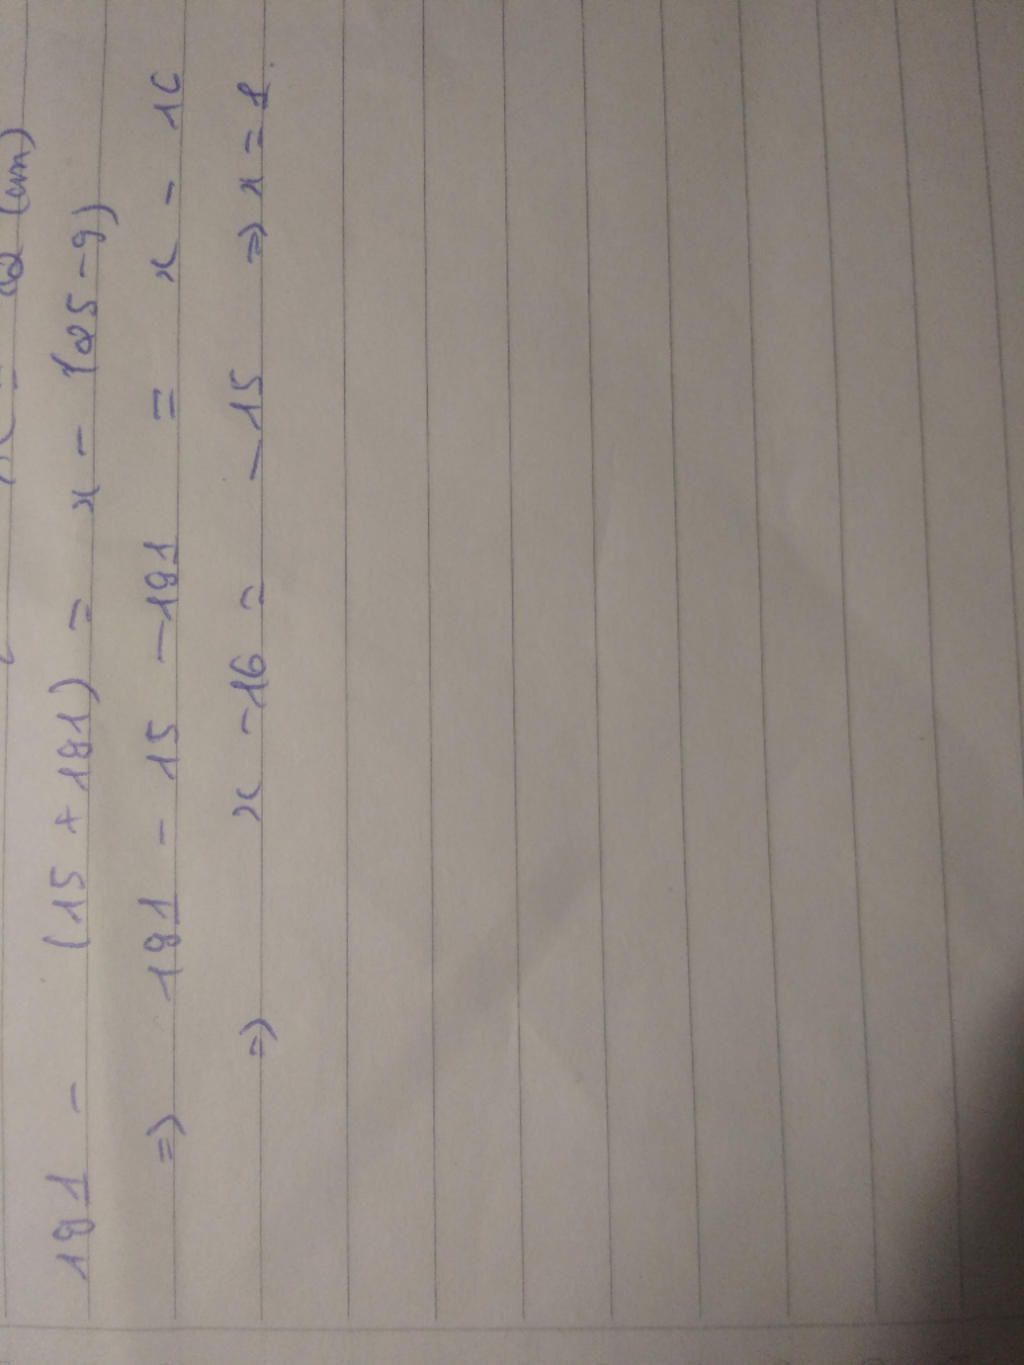 (cm)
191 - (15 + 191) = x - (25 - 9)
=> 191 - 15 - 191 = x - 16
=> x - 16 = -15 => x = 1